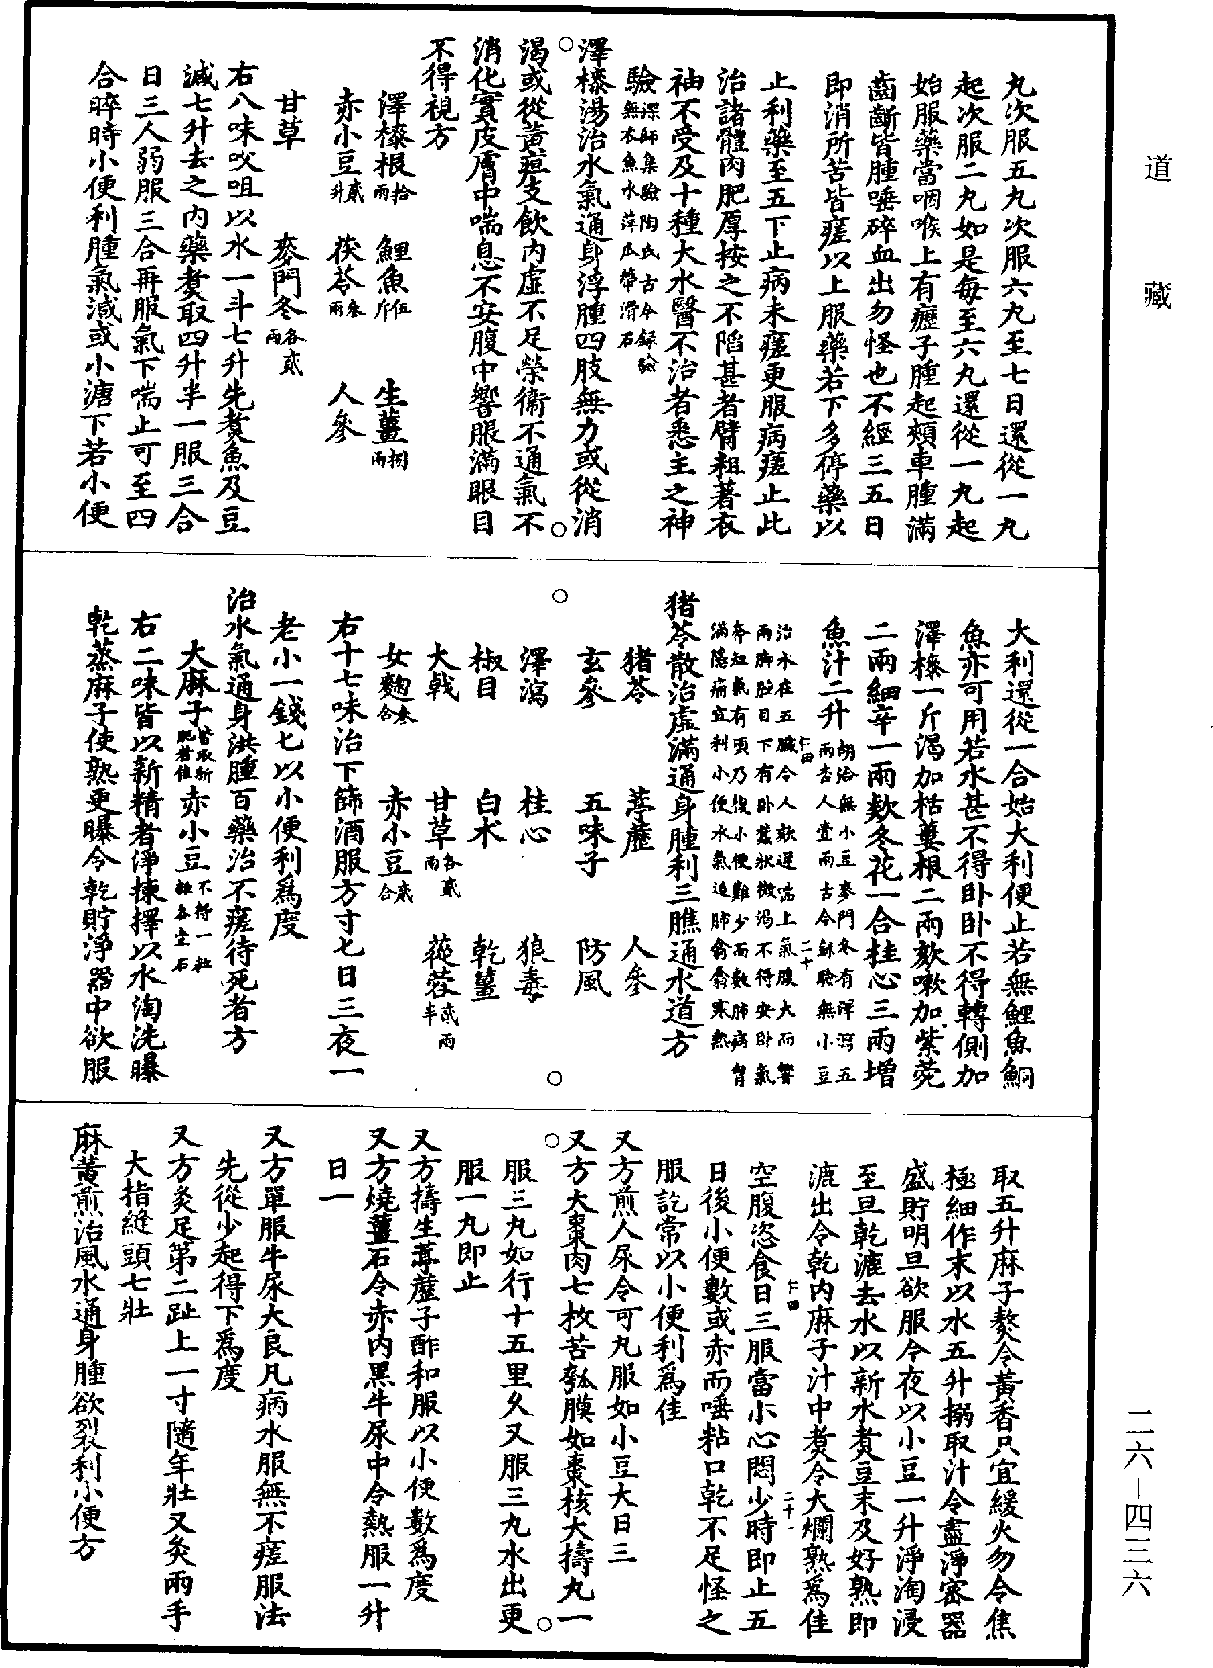 道藏
丸次服五丸次服六丸至七日還從一丸
起次服二丸如是每至六丸還從一丸起
始服藥當咽喉上有癧子腫起頰車腫滿
齒齗皆腫唾碎血出勿怪也不經三五日
即消所苦皆瘥以上服藥若下多停藥以
止利藥至五下止病未瘥更服病瘥止此
治諸體肉肥厚按之不陷甚者臂粗著衣
袖不受及十種大水醫不治者悉主之神
驗深師集驗陶氏古今錄驗
無水魚水萍瓜蒂滑石
澤漆湯治水氣通身浮腫四肢無力或從消
渴或從黃疸支飲內虛不足榮衛不通氣不
消化實皮膚中喘息不安腹中響脹滿眼目
不得視方
澤漆根拾兩 鯉魚伍斤 生薑捌兩
赤小豆貳升 茯苓叁兩 人參
甘草 麥門冬各貳兩
右八味㕮咀以水一斗七升先煮魚及豆
減七升去之內藥煮取四升半一服三合
日三人弱服三合再服氣下喘止可至四
合晬時小便利腫氣減或小溏下若小便
大利還從一合始大利便止若無鯉魚鮦
魚亦可用若水甚不得卧卧不得轉側加
澤漆一斤渴加栝蔞根二兩欬嗽加紫菀
二兩細辛一兩款冬花一合桂心三兩增
魚汁二升胡洽無小豆麥門冬有澤瀉五
兩杏人壹兩古今錄驗無小豆
仁四
二十
治水在五臟令人欬逆喘上氣腹大而響
兩脚腫目下有卧蠶狀微渴不得安卧氣
奔短氣有頃乃復小便難少而數肺病胷
滿隱痛宜利小便水氣迫肺翕翕寒熱
猪苓散治虛滿通身腫利三膲通水道方
猪苓 葶藶 人參
玄參 五味子 防風
澤瀉 桂心 狼毒
椒目 白朮 乾薑
大戟 甘草各貳兩 蓯蓉貳兩半
女麴叁合 赤小豆貳合
右十七味治下篩酒服方寸匕日三夜一
老小一錢匕以小便利爲度
治水氣通身洪腫百藥治不瘥待死者方
大麻子皆取新肥者佳 赤小豆不得一粒雜各壹石
右二味皆以新精者淨揀擇以水淘洗曝
乾蒸麻子使熟更曝令乾貯淨器中欲服
取五升麻子熬令黃香只宜緩火勿令焦
極細作末以水五升搦取汁令盡淨密器
盛貯明旦欲服今夜以小豆一升淨淘浸
至旦乾漉去水以新水煮豆末及好熟即
漉出令乾內麻子汁中煮令大爛熟爲佳
仁四
二十一
空腹恣食日三服當小心悶少時即止五
日後小便數或赤而唾粘口乾不足怪之
服訖常以小便利爲佳
又方煎人尿令可丸服如小豆大日三
又方大棗肉七枚苦瓠膜如棗核大擣丸一
服三丸如行十五里久又服三丸水出更
服一丸即止
又方擣生葶藶子酢和服以小便數爲度
又方燒薑石令赤內黑牛尿中令熱服一升
日一
又方單服牛尿大良凡病水服無不瘥服法
先從少起得下爲度
又方灸足第二趾上一寸隨年壯又灸兩手
大指縫頭七壯
麻黃煎治風水通身腫欲裂利小便方
二六—四三六